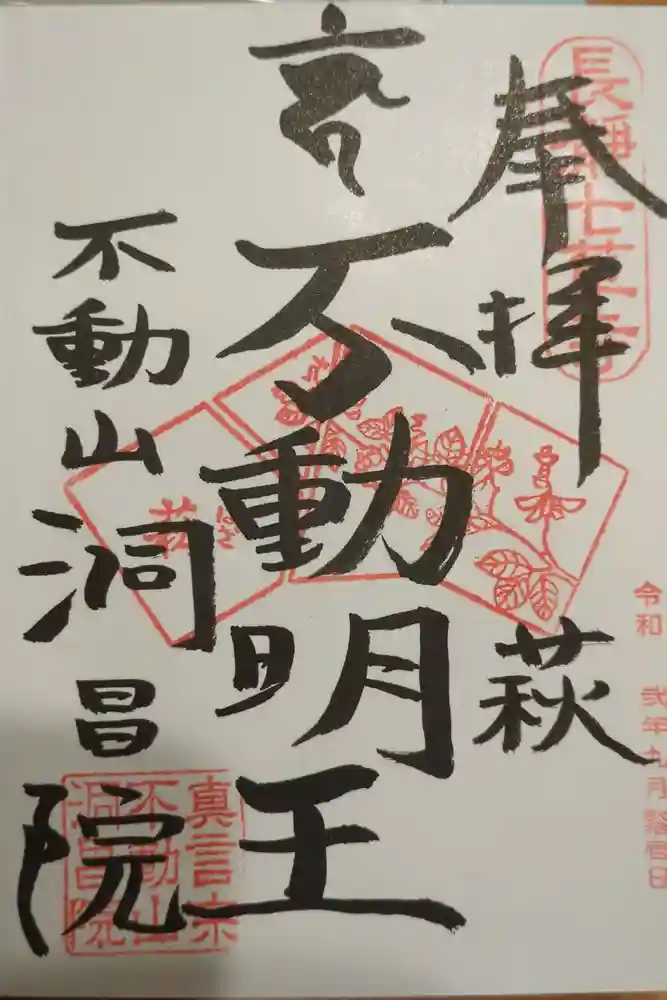 長瀞七草寺
奉拝
萩
令和 弐年九月
不動明王
萩
不動山
洞昌院
真言宗
不動山
洞昌院